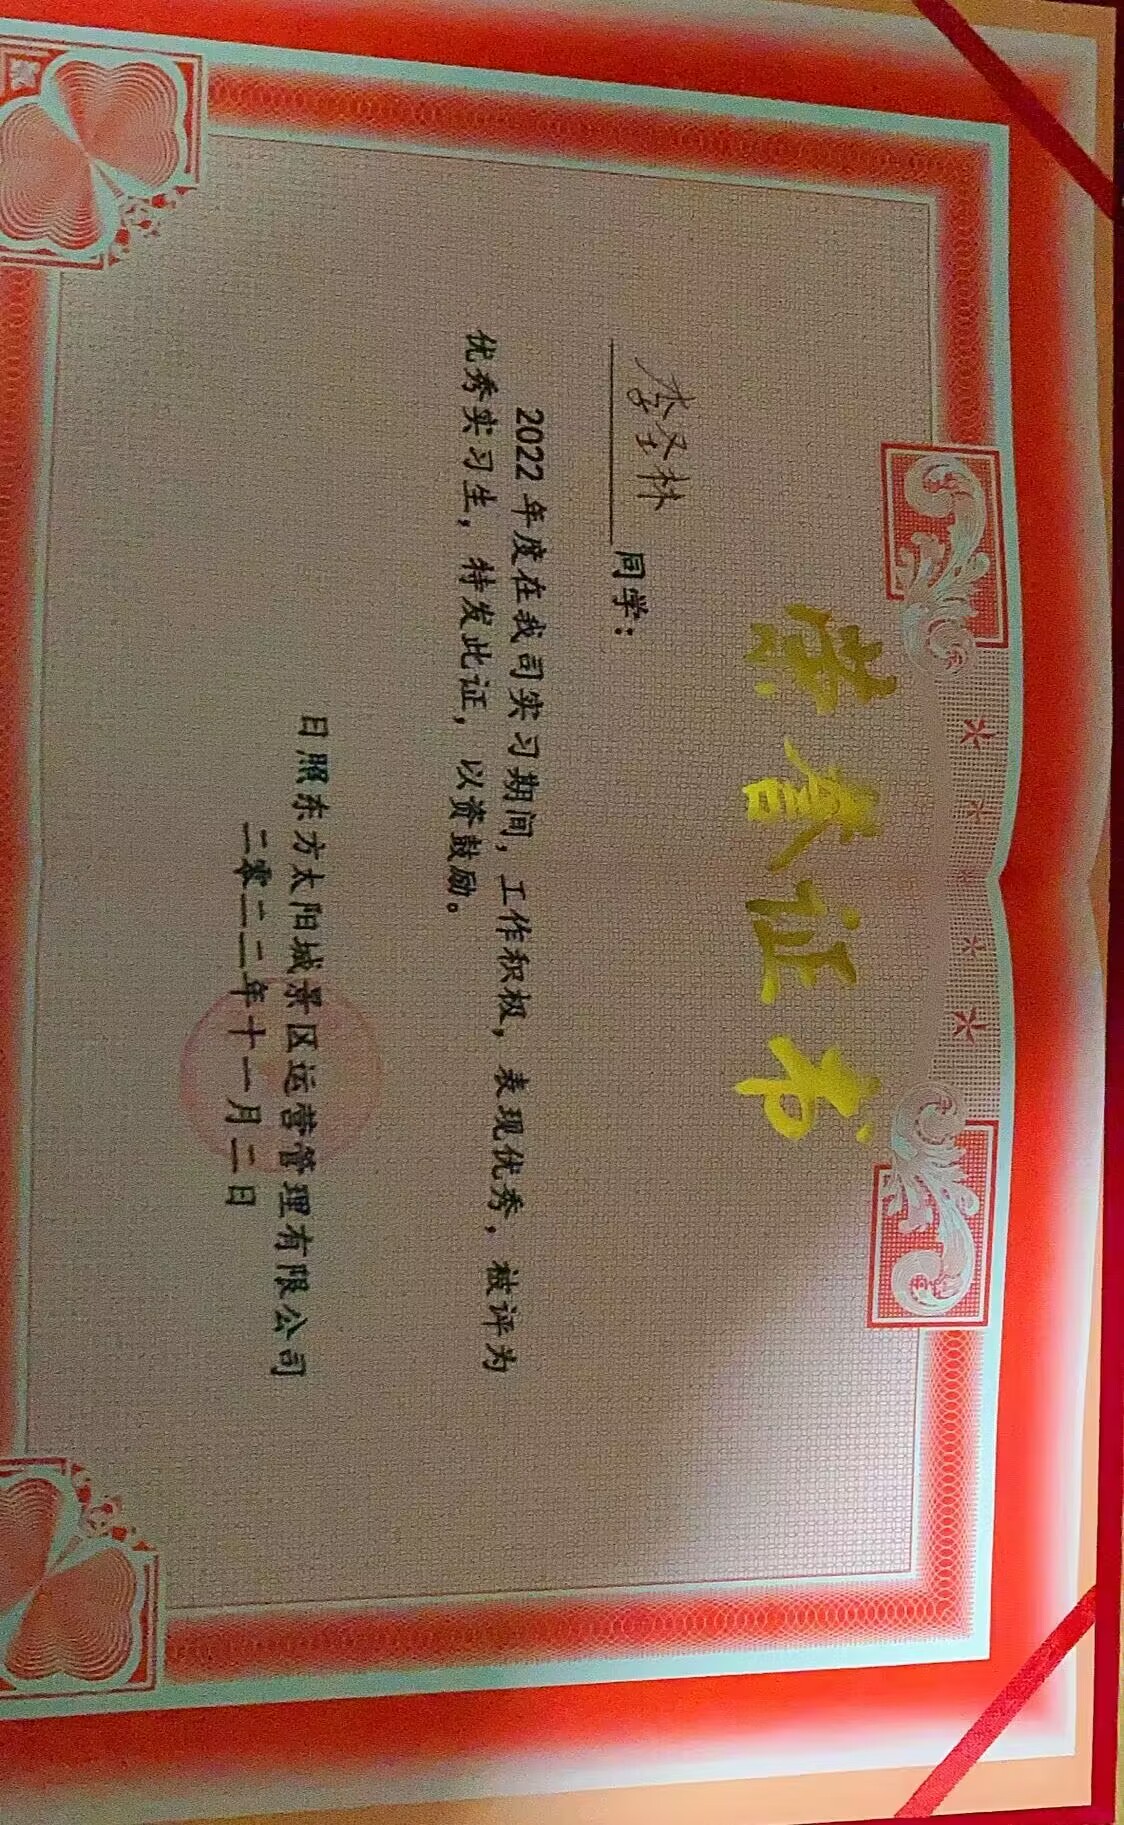 荣誉证书
李圣林 同学：
2022年度在我司实习期间，工作积极，表现优秀，被评为
优秀实习生，特发此证，以资鼓励。
日照东方太阳城景区运营管理有限公司
二零二二年十一月二日